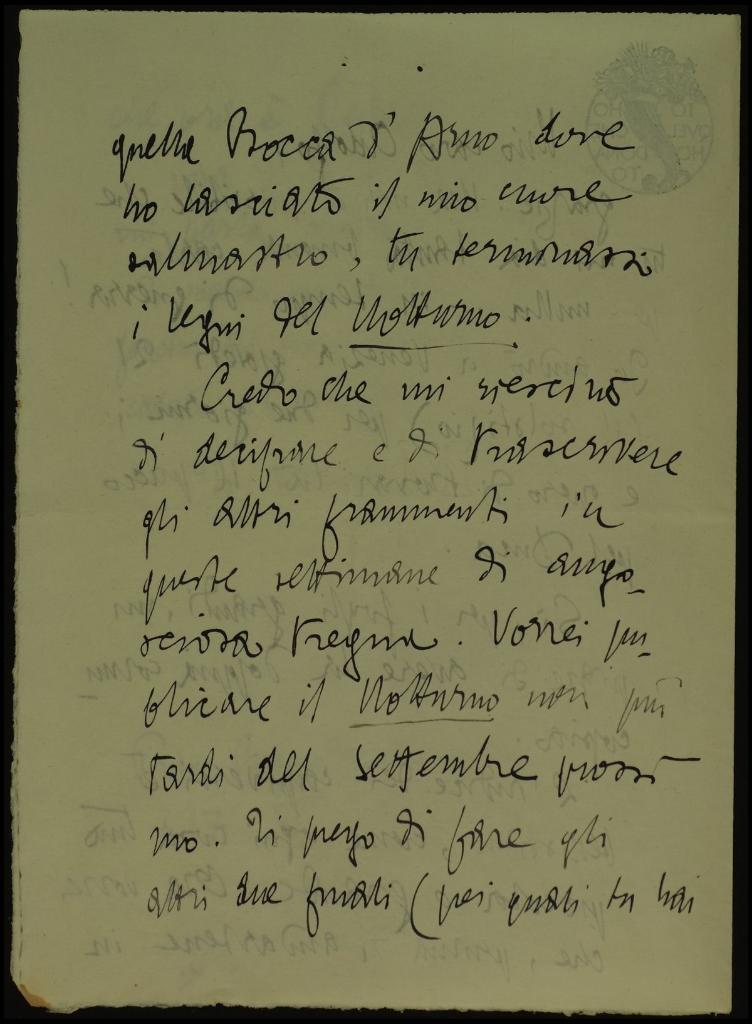 quella Bocca d'Arno dove
ho lasciato il mio cuore
salmastro, tu terminassi
i legni del Notturno.
Credo che mi riescirò
di decifrare e di trascrivere
gli altri frammenti in
queste settimane di ango-
sciosa tregua. Vorrei pu-
blicare il Notturno non più
tardi del Settembre prossi
mo. Ti prego di fare gli
altri due finali (pei quali tu hai